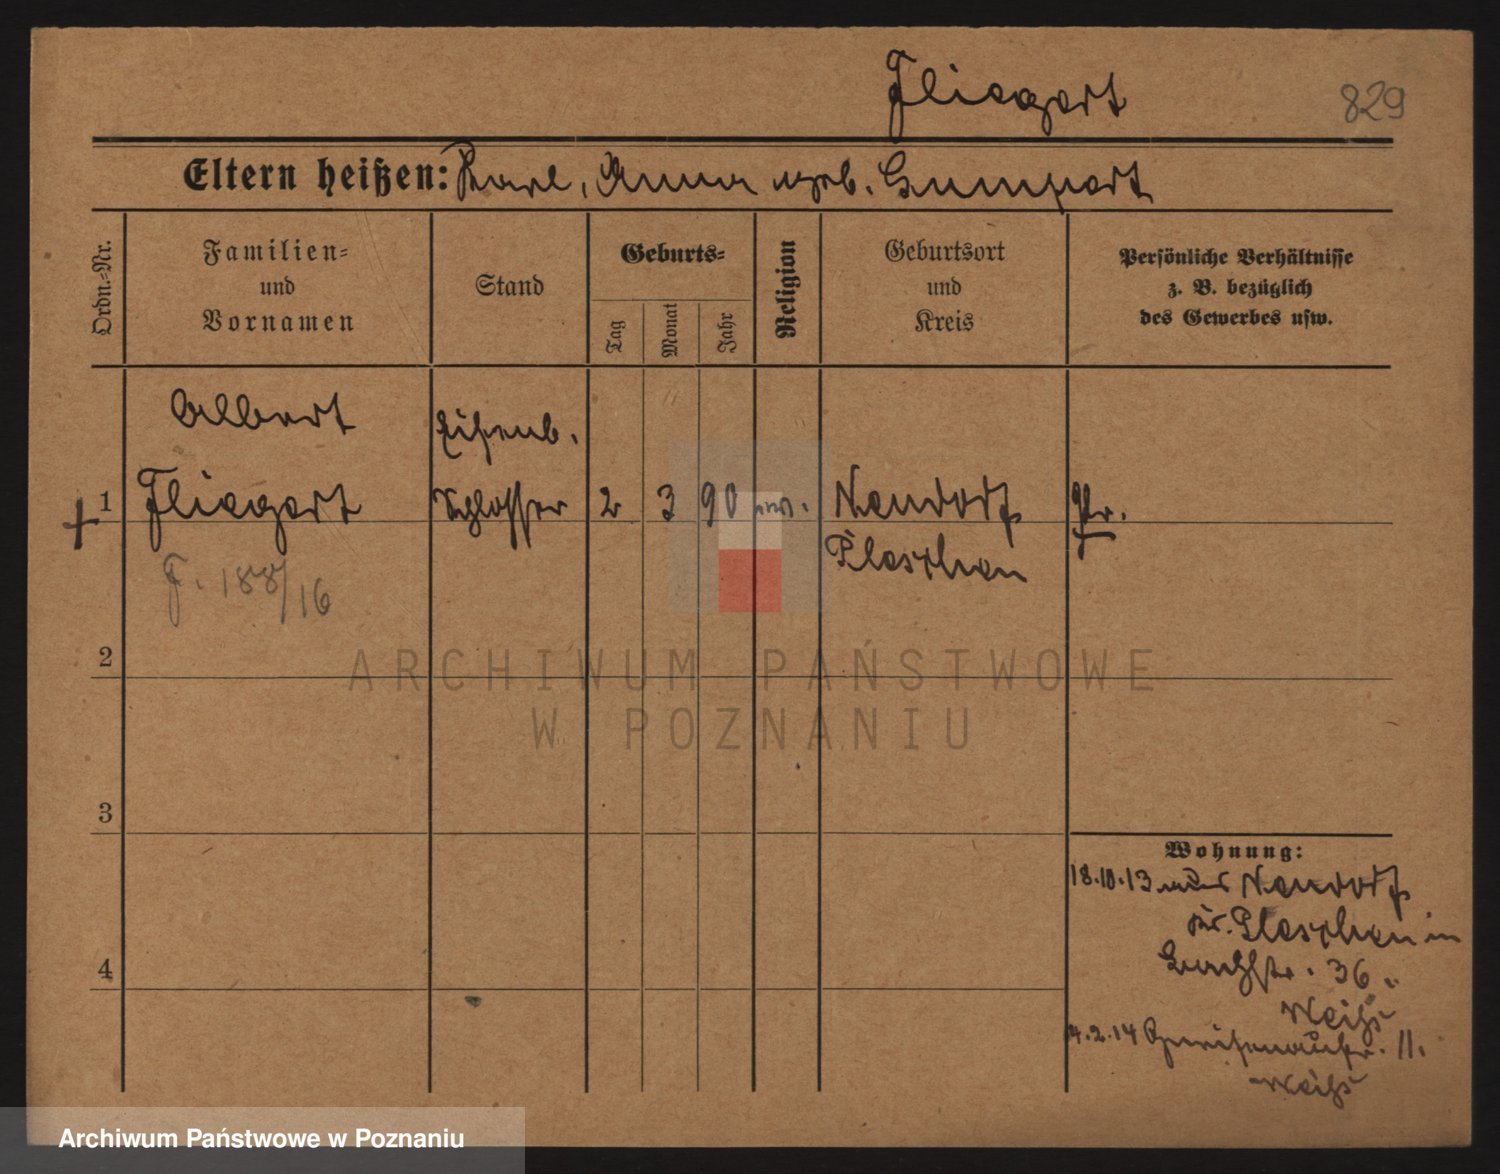 Fliegert
829
Eltern heißen: Karl, Anna geb. Gumpert
Ordn.-Nr.
Familien-
und
Vornamen
Stand
Geburts-
Tag
Monat
Jahr
Religion
Geburtsort
und
Kreis
Persönliche Verhältnisse
z. B. bezüglich
des Gewerbes usw.
Albert
Eisenb.
1 Fliegert Schlosser 2 3 90 Neudorf Pr.
Pleschen
F. 188/16
2
ARCHIWUM PAŃSTWOWE
W POZNANIU
3
Wohnung:
18.10.13 aus Neudorf
Kr. Pleschen in
36
Weiß
4
4.2.14 Gneisenaustr. 11.
Weiß
Archiwum Państwowe w Poznaniu